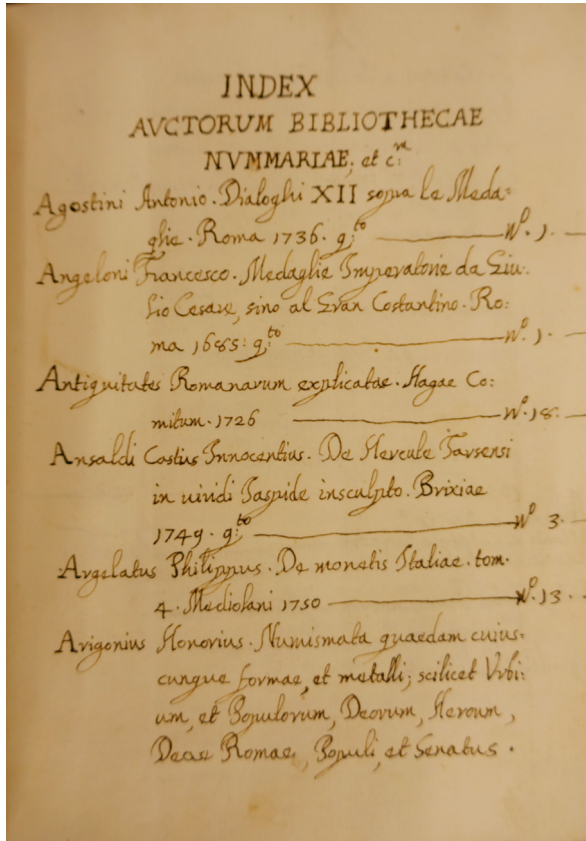 INDEX
AVCTORUM BIBLIOTHECAE
NVMMARIAE, et c.m
Agostini Antonio. Dialoghi XII sopra le Meda=
glie. Roma 1736. 4:to — No. 1.
Angeloni Francesco. Medaglie Imperatorie da Giu=
lio Cesare, sino al Gran Costantino. Ro:
ma 1685: 4:to — No. 1.
Antiquitates Romanarum explicatae. Hagae Co:
mitum. 1726 — No. 18.
Ansaldi Castus Innocentius. De Hercule Tarsensi
in viridi Jaspide insculpto. Brixiae
1749. 4:to — No 3
Argelatus Philippus. De monetis Italiae. tom.
4. Mediolani 1750 — No. 13.
Arigonius Honorius. Numismata quaedam cuius=
cunque formae, et metalli; scilicet Vrbi:
um, et Populorum, Deorum, Heroum,
Deae Romae, Populi, et Senatus.